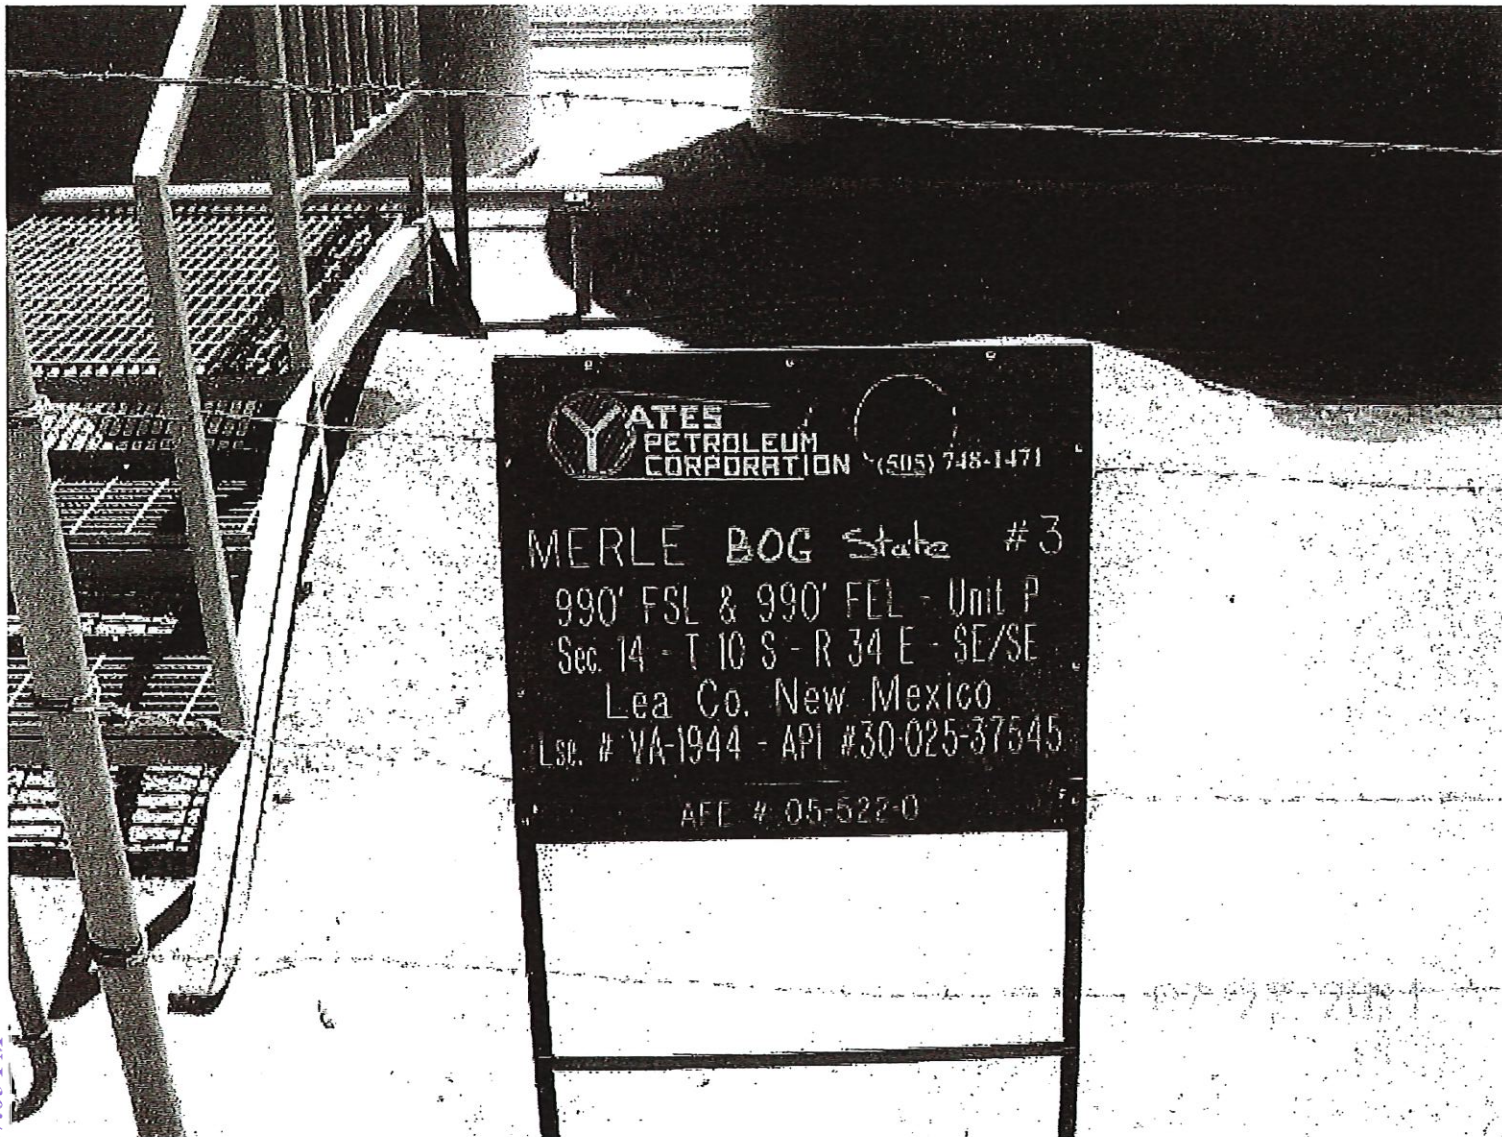 YATES
PETROLEUM
CORPORATION (505) 748-1471
MERLE BOG State #3
990' FSL & 990' FEL - Unit P
Sec. 14 - T 10 S - R 34 E - SE/SE
Lea Co. New Mexico
Lse. # VA-1944 - API #30-025-37545
AFE # 05-522-0